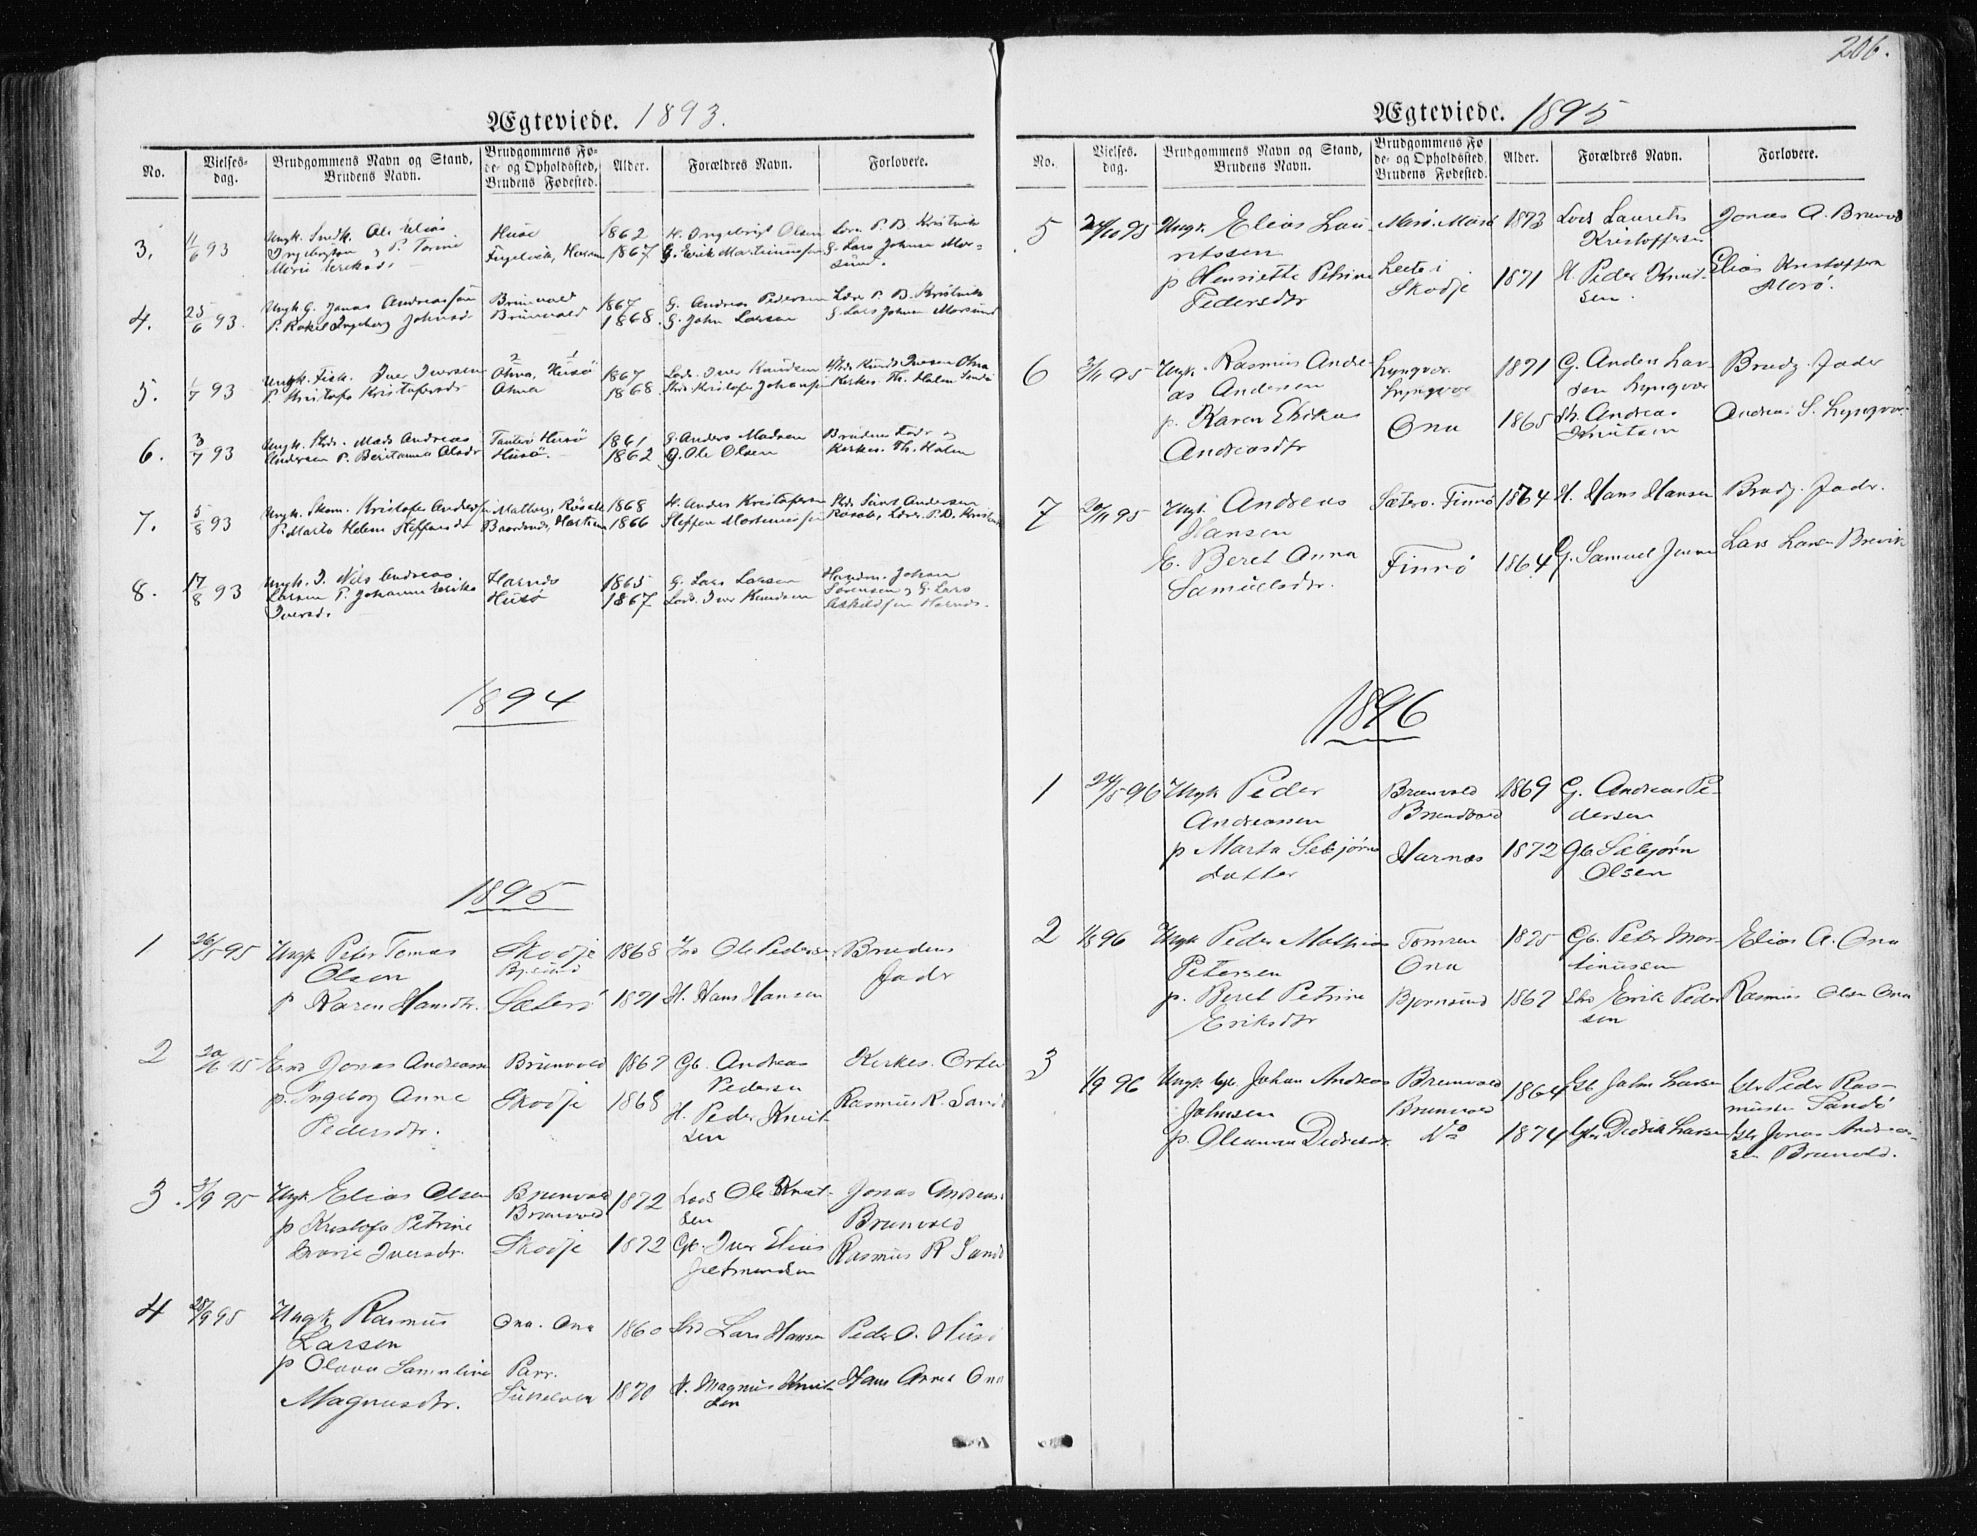 206.
Ægteviede. 1893.
No.
Vielses-
dag.
Brudgommens Navn og Stand,
Brudens Navn.
Brudgommens Fø-
de- og Opholdssted,
Brudens Fødested.
Alder.
Forældres Navn.
Forlovere.
3.
11/6 93
Ungk. Snedk. Ole Elias
Ingebrigtsen
Huse
1862
1867
H. Ingebrigt Olsen
G. Erik Martinussen
Lærer P. B. Kristvik
G. Lars Johnsen Mor-
sund.
4.
25/6 93.
Ungk G. Jonas Andreassen
P. Rakel Ingeborg Johnsd
Brunvold
Brunvold
1867
1868.
G. Andreas Pedersen
G. John Larsen
Lærer P. B. Kristvik
G. Lars Johnsen Morsund
5.
1/7 93
Ungk. Fisk. Iver Iversen
P. Kristofa Kristofersdr
Ohna, Husø
Ohna
1867
1868
Lods. Iver Knudsen
Strds Kristofer Johansen
Strds Knud Iversen Ohna
Kirkes. Th. Holm Sandø
6.
3/7 93
Ungk. Strds. Mads Andreas
Andersen P. Beritanna Olsdr
Husø
Husø.
1861
1862
G. Anders Madsen
G. Ole Olsen
Brudens Fader og
Kirkes. Th. Holm
7.
5/8 93
Ungk. Skom. Kristofer Anders
P. Marta Helene Steffensdr
1868
1866
H. Anders Kristofersen
Steffen Martinussen
8.
17/8 93
Ungk. I. Nils Andreas
Larsen P. Johanna Erika
Iversd.
Harnes
Husø
1865
1867
G. Lars Larsen
Lods. Iver Knudsen
Handm. Johan
Sørensen og G. Lars
Askildsen Harnes.
1894
1895
1
26/5 95
Ungk Peter Tomas
Olsen
p Karen Hansdtr.
Skodje
Bjsund
Sæterø
1868
1871
Ind Ole Pedersen
H. Hans Hansen
Brudens
Fadr
2
20/6 95
Jonas Andreassen
p. Ingeborg Anne
Pedersdtr.
Brunvold
Skodje
1867
1868
Gb. Andreas
Pedersen
H. Peder Knut-
sen
Kirkes. Orten
Rasmus R. Sandø
3
/9 95
Ungk Elias Olsen
p Kristofa Petrine
Marie Iversdtr.
Brunvold
Brunvold
Skodje
1872
1872
Lods Ole Knut-
sen
Gb. Iver Elias
Jetmundsen
Jonas Andreas.
Brunvold
Rasmus R Sandø
4
28/9 95
Ungk Rasmus
Larsen
p Olava Samueline
Magnusdtr.
Ona. Ona
Parr.
1860
1870
Strd Lars Hansen
H. Magnus Knut-
sen
Peder O. Husø
Hans Ona
Ægteviede. 1895
No.
Vielses-
dag.
Brudgommens Navn og Stand,
Brudens Navn.
Brudgommens Fø
de- og Opholdssted,
Brudens Fødested.
Alder.
Forældres Navn.
Forlovere.
5
24/10 95
Ungk. Elias Lau-
ritssen
p Henriette Petrine
Pedersdtr
Leete i
Skodje
1873
1871
Lods Laurits
Kristoffersen
H. Peder Knut-
sen.
Jonas A. Brunvold
Elias Kristoffersen
Morø.
6
2/11 95
Ungk. Rasmus Andre-
as Andersen
p. Karen Erika
Andreasdtr
Lyngvær
Lyngvær
Ona
1871
1865
G. Anders Lar-
sen Lyngvær
Str. Andreas
Knutsen
Brudg. Fader
Andreas S. Lyngvær
7
20/11 95
Ungk. Andreas
Hansen
E. Beret Anna
Samuelsdtr.
Sæterø. Finnø
Finnø
1864
1864
H. Hans Hansen
G. Samuel Jensen
Brudg. Fadr.
Lars Larsen Brevik
1896
1
24/5 96
Ungk Peder
Andreassen
p Marta Sebjørns
datter
Brunvold
Brundvold
Harnes
1869
1872
G. Andreas Pe-
dersen
Gb Sebjørn
Olsen
2
1/8 96
Ungk Peder Mathias
Petersen
p. Beret Petrine
Eriksdtr
Tomren
Ona
Bjørnsund
1875
1867
Gb. Peter Mar-
tinussen
Strd Erik Peder
sen
Elias A. Ona
Rasmus Olsen Ona
3
1/9 96
Ungk Gb. Johan Andreas
Johnsen
p. Oleanna Didriksdtr.
Brunvold
Brunvold
No
1864
1874
Gb John Larsen
Gbr Didrik Larsen
Gbr Peder Ras-
mussen Sandø
Gbr Jonas Andreas-
sen Brunvold.